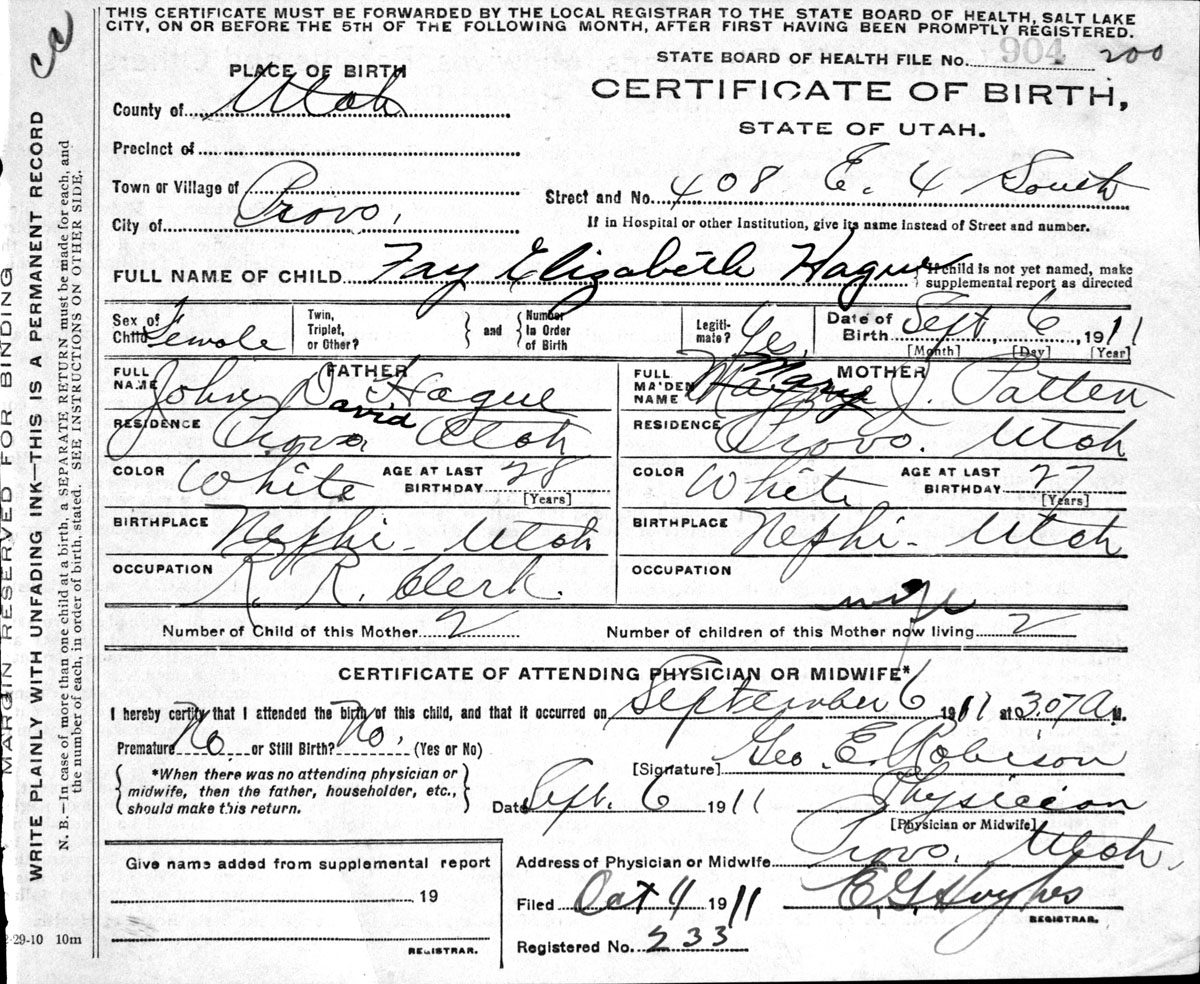 THIS CERTIFICATE MUST BE FORWARDED BY THE LOCAL REGISTRAR TO THE STATE BOARD OF HEALTH, SALT LAKE
CITY, ON OR BEFORE THE 5TH OF THE FOLLOWING MONTH, AFTER FIRST HAVING BEEN PROMPTLY REGISTERED.
STATE BOARD OF HEALTH FILE No. 904 200
PLACE OF BIRTH
CERTIFICATE OF BIRTH,
STATE OF UTAH.
County of Utah
Precinct of
Town or Village of
City of Provo,
Street and No. 408 E. 4 South
If in Hospital or other Institution, give its name instead of Street and number.
FULL NAME OF CHILD Fay Elizabeth Hague { If child is not yet named, make
supplemental report as directed
Sex of Child Female
Twin, Triplet, or Other? } and { Number in Order of Birth
Legiti-mate? Yes.
Date of Birth Sept 6, 1911
[Month] [Day] [Year]
FATHER
FULL NAME John D. Hague
avid
RESIDENCE Provo, Utah
COLOR White AGE AT LAST BIRTHDAY 28
[Years]
BIRTHPLACE Nephi - Utah
OCCUPATION R. R. Clerk.
MOTHER
FULL MAIDEN NAME Mary J. Patten
RESIDENCE Provo. Utah
COLOR White AGE AT LAST BIRTHDAY 27
[Years]
BIRTHPLACE Nephi - Utah
OCCUPATION
wife
Number of Child of this Mother 2 Number of children of this Mother now living 2
CERTIFICATE OF ATTENDING PHYSICIAN OR MIDWIFE*
I hereby certify that I attended the birth of this child, and that it occurred on September 6 1911 at 3.07 A M.
Premature No or Still Birth? No. (Yes or No)
[Signature] Geo. E. Robison
{ *When there was no attending physician or
midwife, then the father, householder, etc.,
should make this return. }
Date Sept. 6 1911 Physician
[Physician or Midwife]
Give name added from supplemental report
19
REGISTRAR.
Address of Physician or Midwife Provo, Utah.
Filed Oct 4 1911 E. G. Hughes
REGISTRAR.
Registered No. 233
2-29-10 10m
MARGIN RESERVED FOR BINDING
WRITE PLAINLY WITH UNFADING INK—THIS IS A PERMANENT RECORD
N. B.—In case of more than one child at a birth, a SEPARATE RETURN must be made for each, and
the number of each, in order of birth, stated. SEE INSTRUCTIONS ON OTHER SIDE.